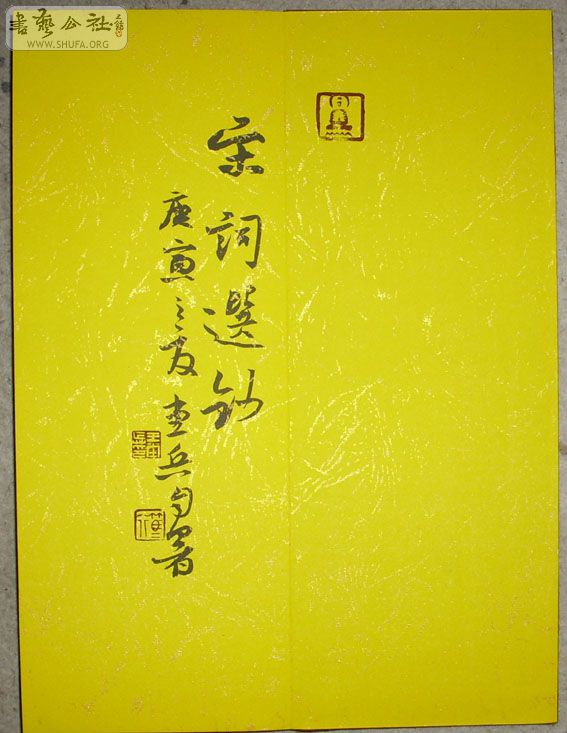 書藝公社
WWW.SHUFA.ORG
宋詞選鈔
庚寅之夏
兵自署